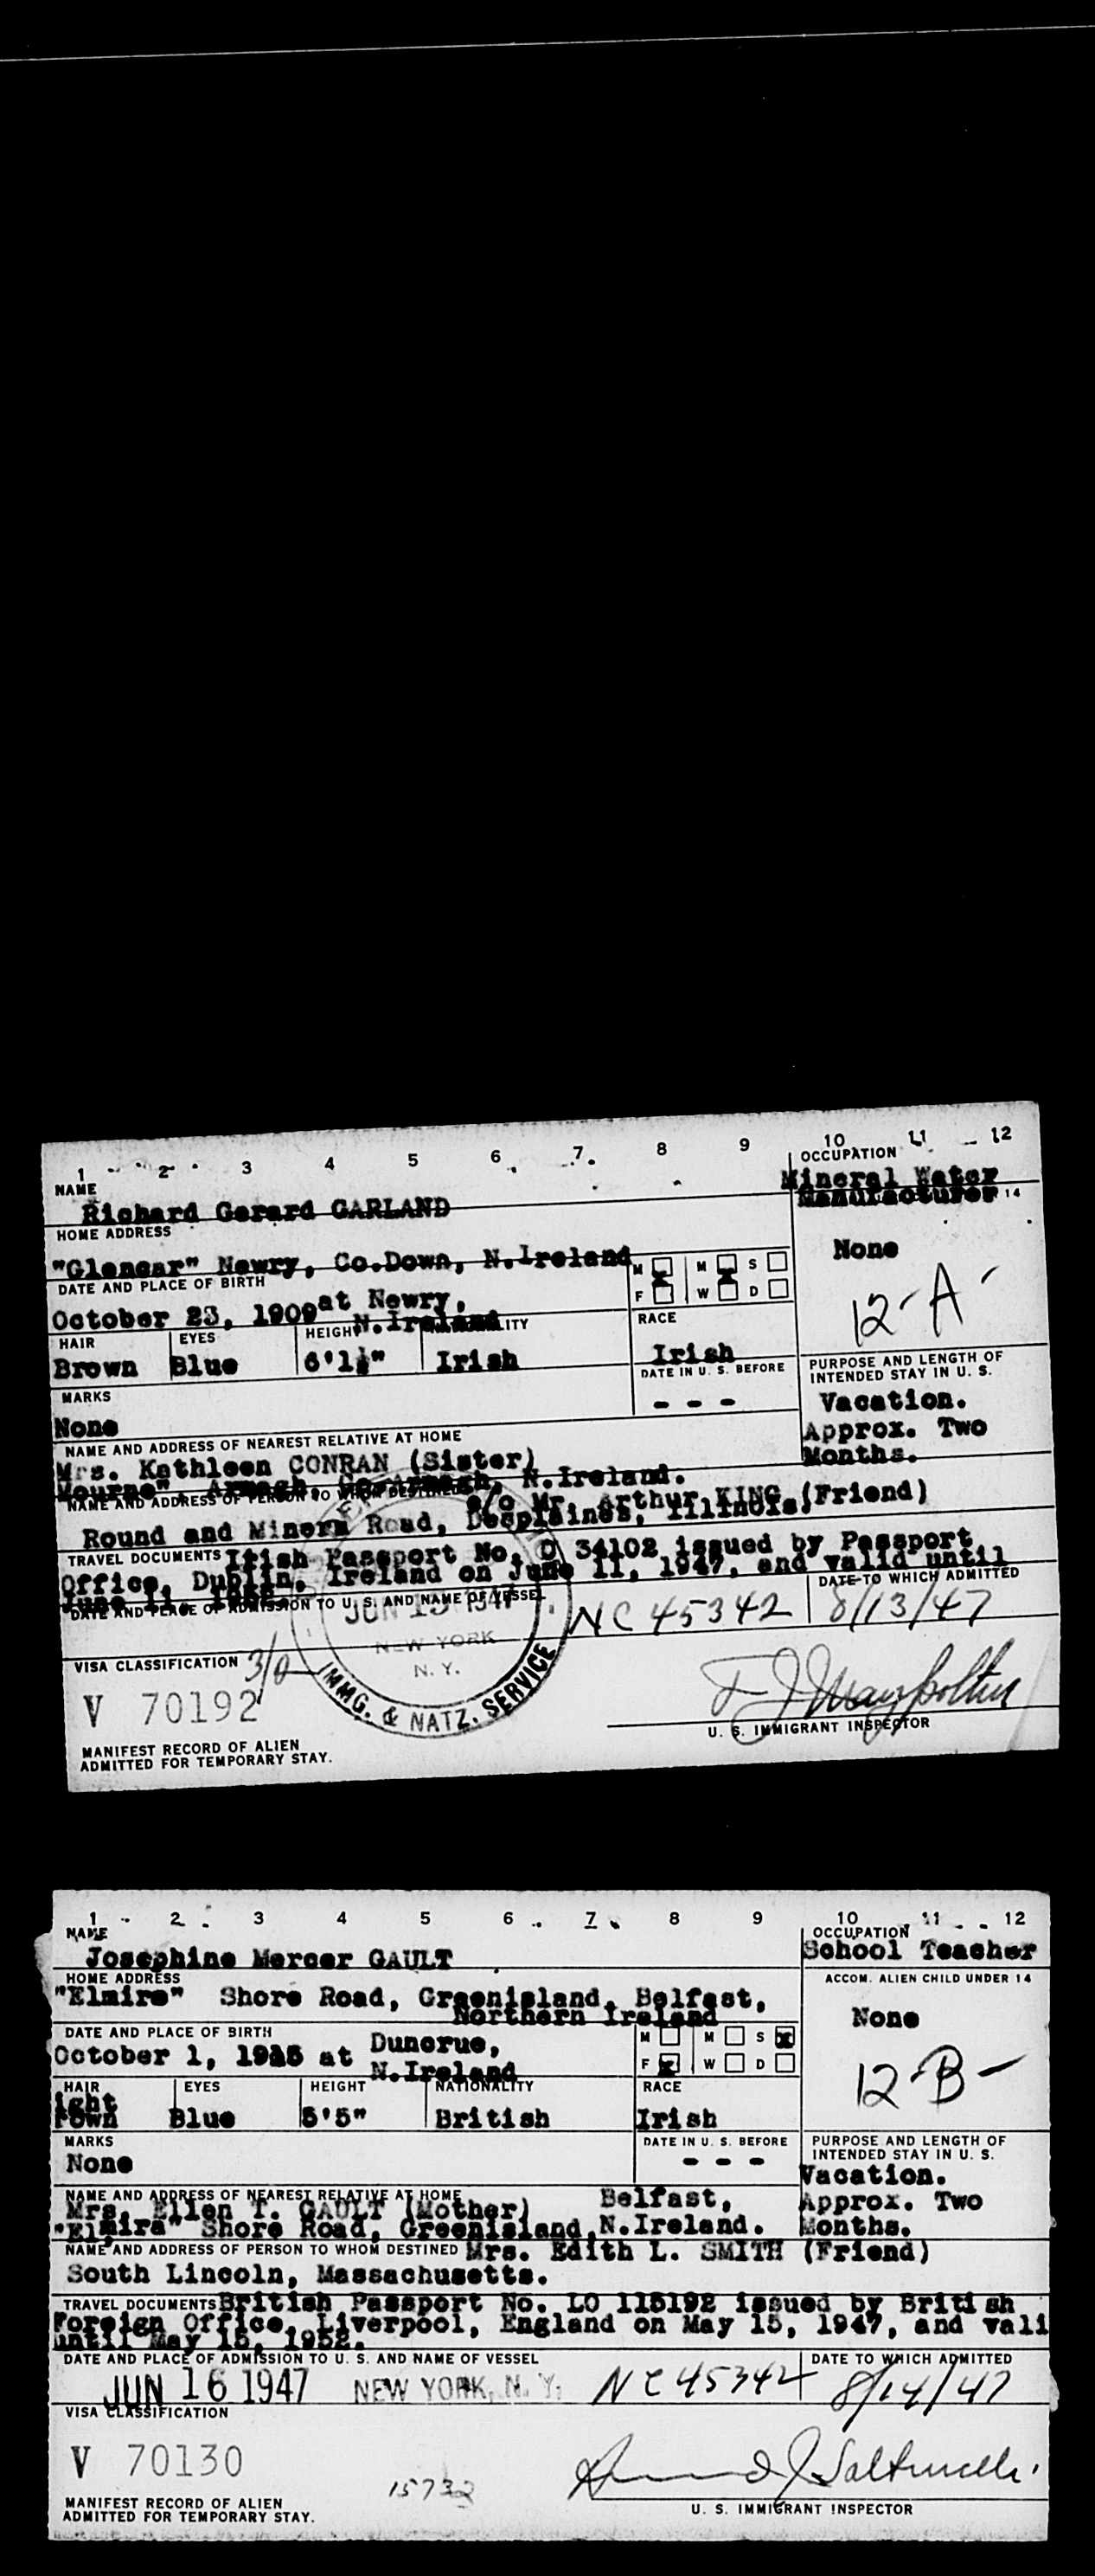 1 2 3 4 5 6 7 8 9 10 11 12
NAME
Richard Gerard GARLAND
OCCUPATION
Mineral Water
Manufacturer 14
HOME ADDRESS
"Glencar" Newry, Co.Down, N.Ireland
None
M M S
F W D
DATE AND PLACE OF BIRTH
October 23, 1909 at Newry,
N.Ireland
12-A-
HAIR EYES HEIGHT NATIONALITY RACE
Brown Blue 6'1½" Irish Irish
MARKS DATE IN U. S. BEFORE
None - - -
PURPOSE AND LENGTH OF
INTENDED STAY IN U. S.
Vacation.
Approx. Two
Months.
NAME AND ADDRESS OF NEAREST RELATIVE AT HOME
Mrs. Kathleen CONRAN (Sister)
Mourne", Armagh, Co.Armagh, N.Ireland.
NAME AND ADDRESS OF PERSON TO WHOM DESTINED
c/o Mr. Arthur KING (Friend)
Round and Minera Road, Desplaines, Illinois.
TRAVEL DOCUMENTS Irish Passport No. D 34102 issued by Passport
Office, Dublin, Ireland on June 11, 1947, and valid until
June 11, 1952.
DATE AND PLACE OF ADMISSION TO U. S. AND NAME OF VESSEL
DATE TO WHICH ADMITTED
JUN 15 1947
NC 45342 8/13/47
NEW YORK
N. Y.
IMMG. & NATZ. SERVICE
VISA CLASSIFICATION 3/0
V 70192
U. S. IMMIGRANT INSPECTOR
MANIFEST RECORD OF ALIEN
ADMITTED FOR TEMPORARY STAY.
1 2 3 4 5 6 7 8 9 10 11 12
NAME
Josephine Mercer GAULT
OCCUPATION
School Teacher
HOME ADDRESS
"Elmire" Shore Road, Greenisland, Belfast,
Northern Ireland
ACCOM. ALIEN CHILD UNDER 14
None
DATE AND PLACE OF BIRTH
October 1, at Duncrue,
N.Ireland
M M S X
F X W D
12-B-
HAIR EYES HEIGHT NATIONALITY RACE
ight
rown Blue 5'5" British Irish
MARKS DATE IN U. S. BEFORE
None - - -
PURPOSE AND LENGTH OF
INTENDED STAY IN U. S.
Vacation.
Approx. Two
Months.
NAME AND ADDRESS OF NEAREST RELATIVE AT HOME
Mrs. Ellen T. GAULT (Mother) Belfast,
"Elmira" Shore Road, Greenisland, N.Ireland.
NAME AND ADDRESS OF PERSON TO WHOM DESTINED Mrs. Edith L. SMITH (Friend)
South Lincoln, Massachusetts.
TRAVEL DOCUMENTS British Passport No. LO 115192 issued by British
Foreign Office, Liverpool, England on May 15, 1947, and vali
until May 15, 1952.
DATE AND PLACE OF ADMISSION TO U. S. AND NAME OF VESSEL
DATE TO WHICH ADMITTED
JUN 16 1947 NEW YORK, N. Y. NC 45342 8/14/47
VISA CLASSIFICATION
V 70130
15732
U. S. IMMIGRANT INSPECTOR
MANIFEST RECORD OF ALIEN
ADMITTED FOR TEMPORARY STAY.